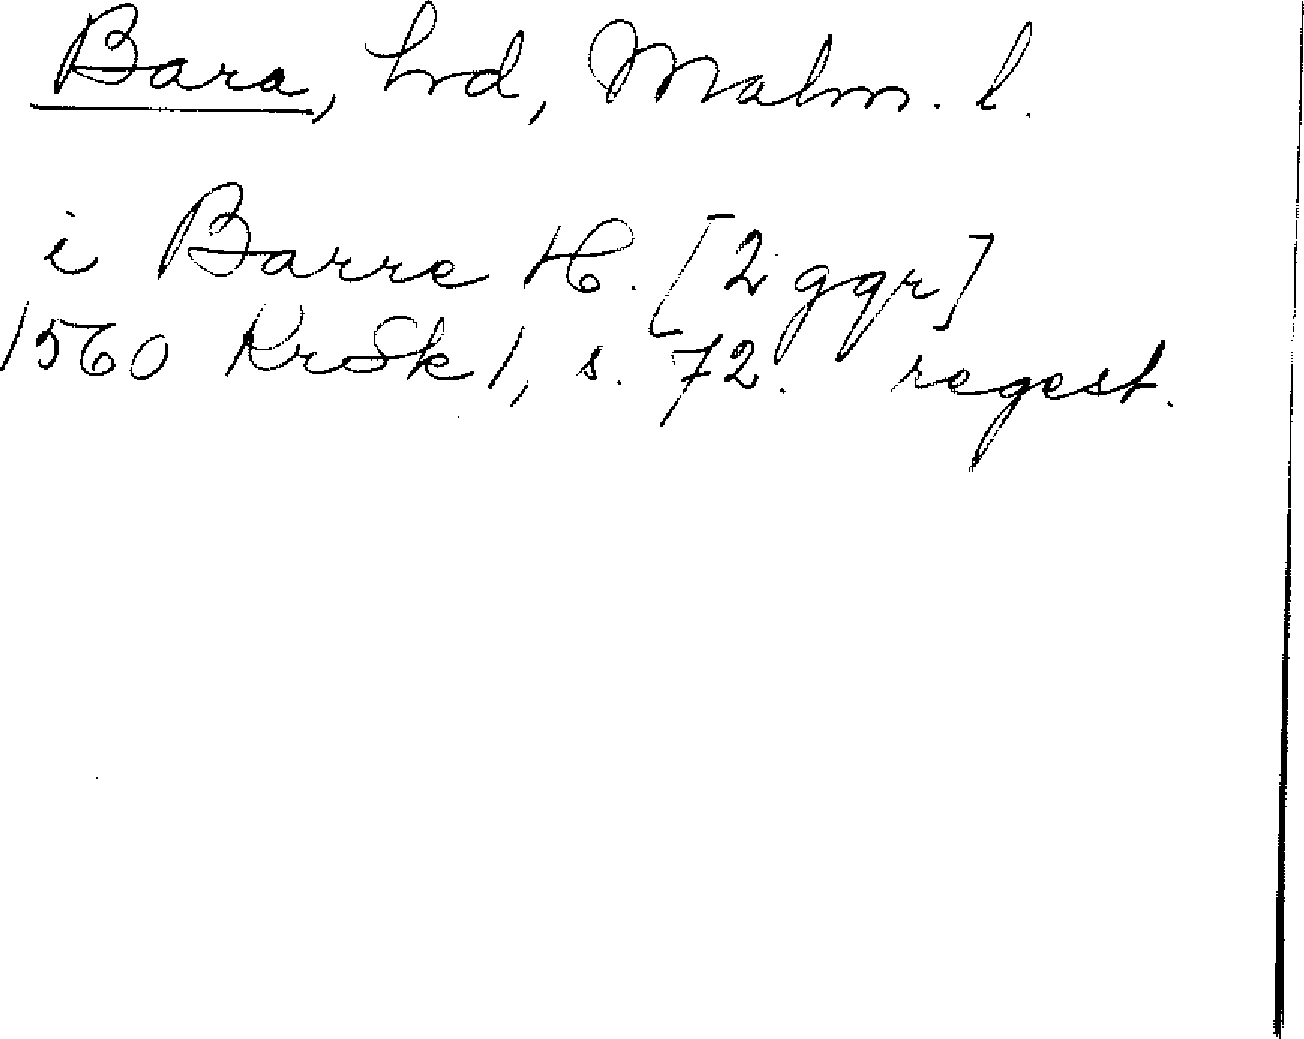 Bara, hrd, Malm. l.
i Barre H. [2 ggr]
1560 KrSk 1, s. 72. regest.